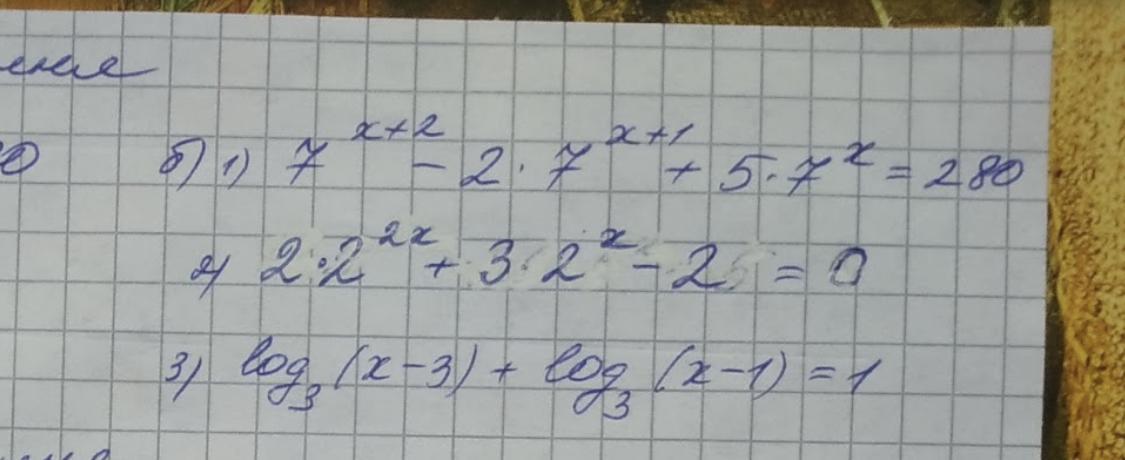 б) 1) 7^{x+2} - 2·7^{x+1} + 5·7^x = 280
2) 2·2^{2x} + 3·2^x - 2 = 0
3) log_3 (x-3) + log_3 (x-1) = 1